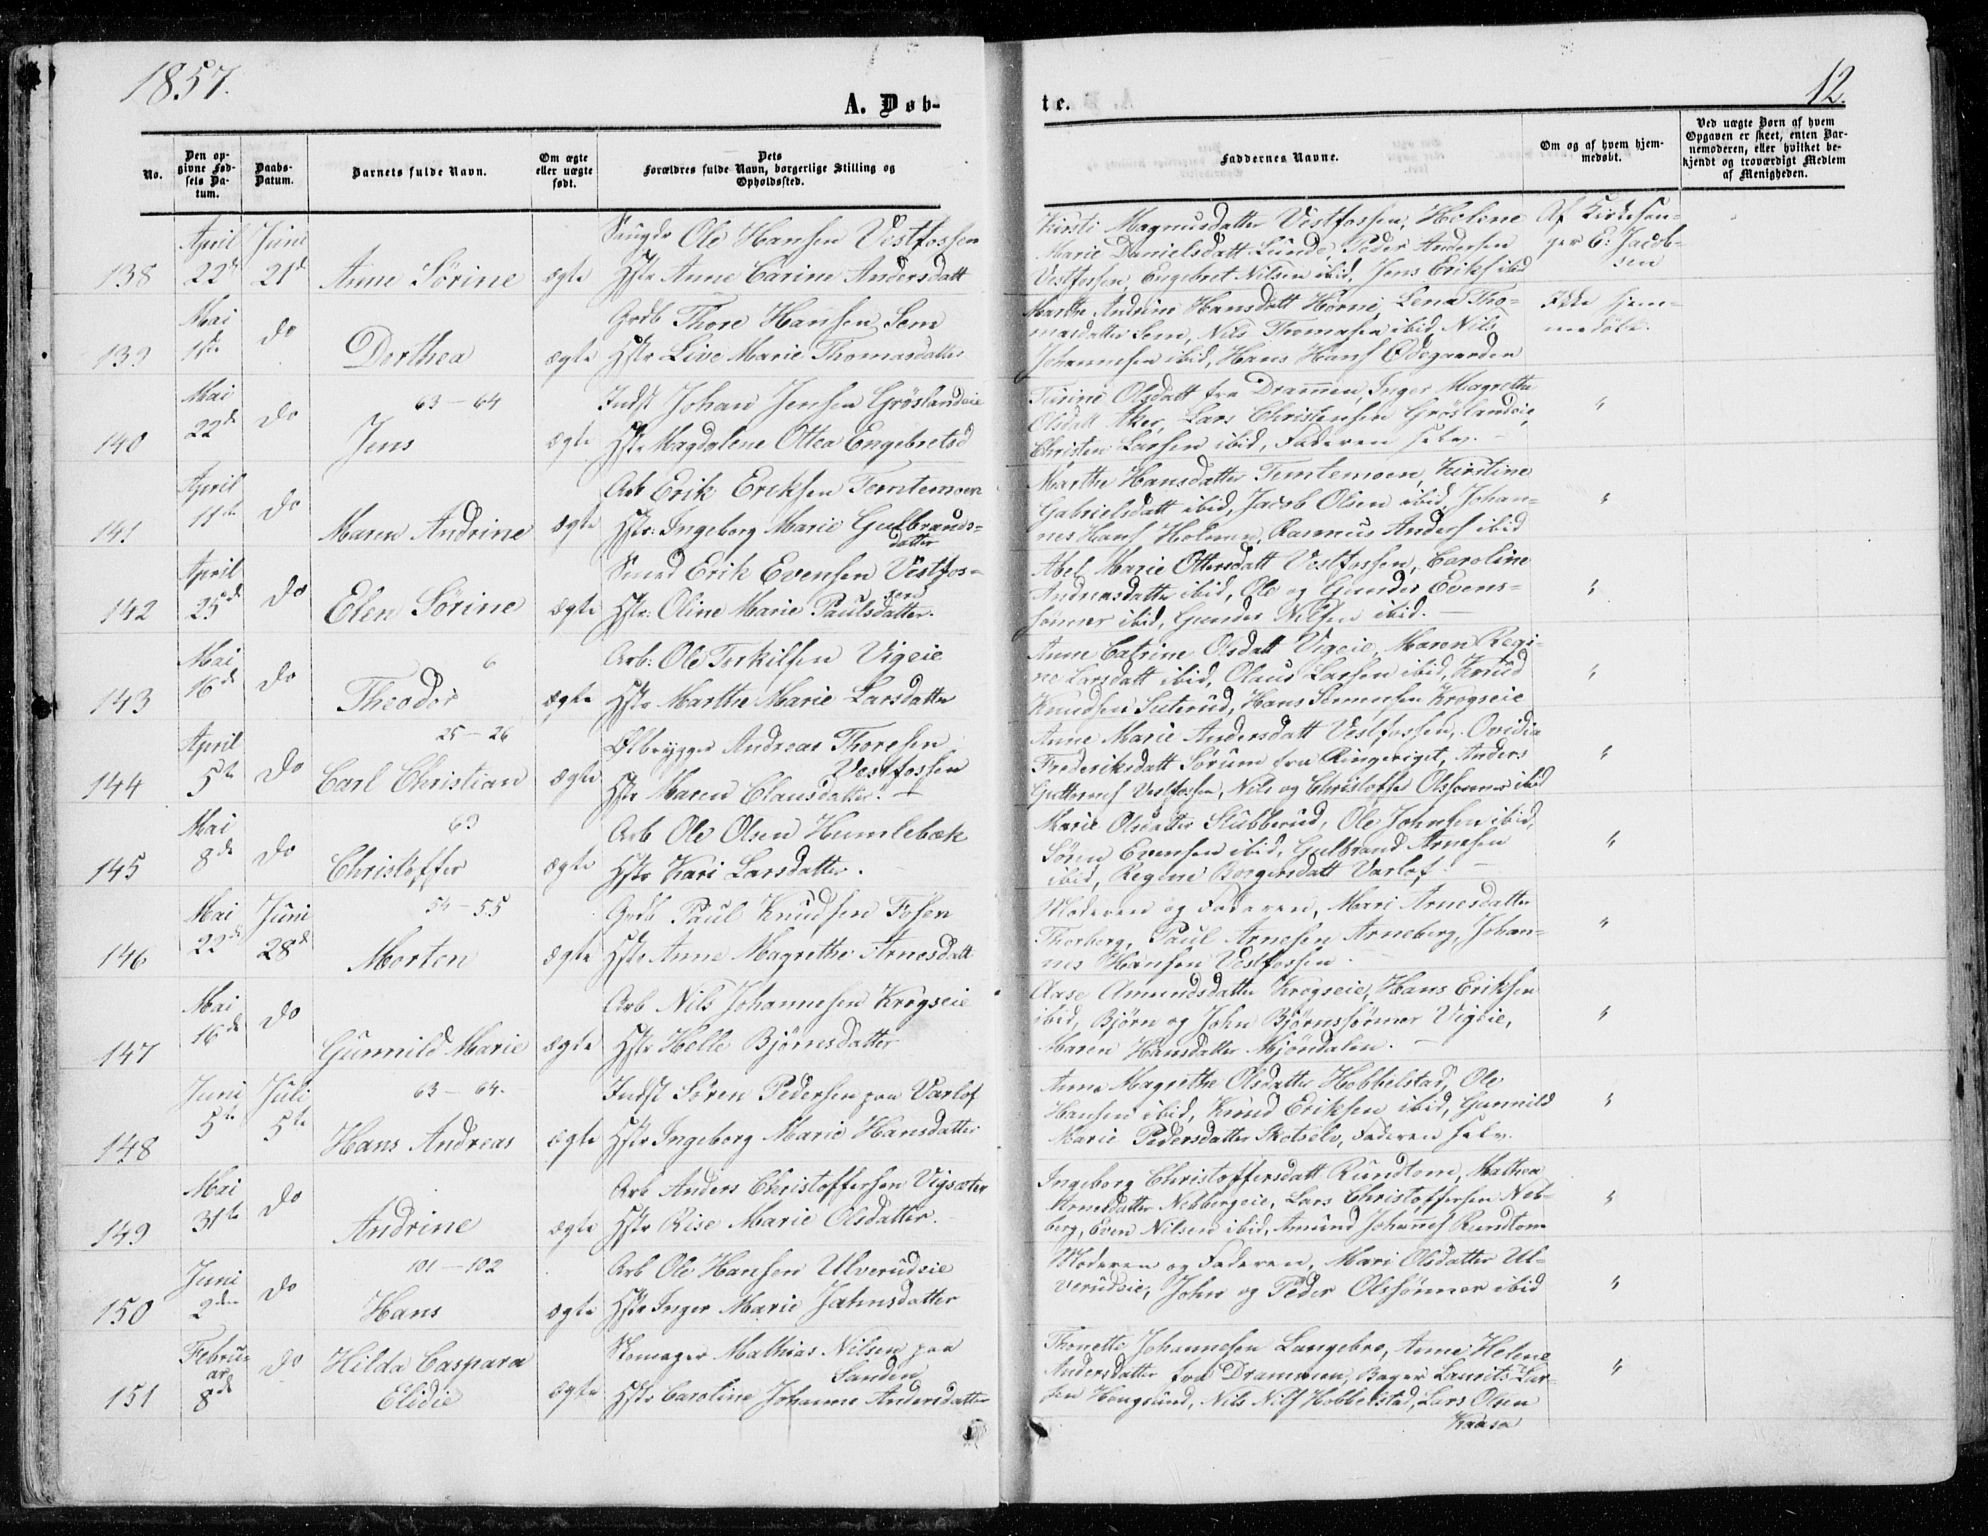 1857.
12.
A. Døb-
te.
No.
Den op-
givne Fød-
sels Da-
tum.
Daabs-
Datum.
Barnets fulde Navn.
Om ægte
eller uægte
født.
Dets
Forældres fulde Navn, borgerlige Stilling og
Opholdssted.
Faddernes Navne.
Om og af hvem hjem-
medøbt.
Ved uægte Børn af hvem
Opgaven er skeet, enten Bar-
nemoderen, eller hvilket be-
kjendt og troværdigt Medlem
af Menigheden.
138
April
22de
Juni
21de
Anne Sörine
ægte
Ole Hansen Vestfossen
Hstr Anne Carine Andersdatt
Kirsti Magnusdatter Vestfossen, Helene
Marie Danielsdatt Lunde, Peder Andersen
Vestfossen, Engebret Nilsen ibid, Jens Eriks ibid
Af Kirkesan-
ger E: Jacob-
sen
139
Mai
1ste
do
Dorthea
ægte
Gdb Thore Hansen Sem
Hstr Live Marie Thomasdatter
Marthe Andrine Hansdatt Horne, Lena Tho-
masdatter Sem, Nils Thomasen ibid, Nils
Johannesen ibid, Hans Hans Ødegaarden
Ikke hjem-
medöbt.
140
Mai
22de
do
63-64
Jens
ægte
Indst Johan Jensen Gröslandeie
Hstr Magdalene Ottea Engebretsd
Turine Olsdatt fra Dramen, Inger Magrethe
Olsdatt Aker, Lars Christensen Gröslandeie,
Christen Larsen ibid, Faderen selv. -
"
141
April
11te
do
Maren Andrine
ægte
Arb Erik Eriksen Temtemoen
Hstr: Ingeborg Marie Gulbrands-
datter
Marthe Hansdatter Temtemoen, Kirstine
Gabrielsdatt ibid, Jacob Olsen ibid, Johan-
nes Hans Holmen, Rasmus Anders ibid
"
142
April
25de
do
Elen Sörine
ægte
Smed Erik Evensen Vestfos-
sen
Hstr: Oline Marie Paulsdatter.
Abel Marie Ottersdatt Vestfossen, Caroline
Andreasdatter ibid, Ole og Gunder Evens-
sönner ibid, Gunder Nilsen ibid. -
"
143
Mai
16de
do
6
Theodor
ægte
Arb: Ole Terkilsen Vigeie
Hstr Marthe Marie Larsdatter
Anne Catrine Olsdatt Vigeie, Maren Regi-
ne Larsdatt ibid, Olaus Larsen ibid, Knud
Knudsen Suterud, Hans Simensen Krogseie
"
144
April
5te
do
25-26
Carl Christian
ægte
Ølbrygger Andreas Thoresen
Vestfossen
Hstr Maren Clausdatter. -
Anne Marie Andersdatt Vestfossen, Ovidia
Frederiksdatt Sörum fra Ringeriget, Anders
Guttorms Vestfossen, Nils og Christoffer Olssönner ibid
"
145
Mai
8de
do
63
Christoffer
ægte
Arb Ole Olsen Humlebæk
Hstr Kari Larsdatter.
Marie Olsdatter Stubberud, Ole Johnsen ibid,
Sören Evensen ibid, Gulbrand Arnesen
ibid, Regine Borgersdatt Varlof. -
"
146
Mai
22de
Juni
28de
54-55
Morten
ægte
Gdb Paul Knudsen Fosen
Hstr Anne Magrethe Arnesdatt
Moderen og Faderen, Mari Arnesdatter
Thorberg, Paul Arnesen Arneberg, Johan-
nes Hansen Vestfossen.
"
147
Mai
16de
do
Gunnild Marie
ægte
Arb Nils Johannesen Krogseie
Hstr Helle Bjørnsdatter
Aase Amundsdatter Krogseie, Hans Eriksen
ibid, Bjørn og John Bjørnssönner Vigeie,
Maren Hansdatter Mjöndalen. -
"
148
Juni
5te
Juli
5te
63-64.
Hans Andreas
ægte
Indst Sören Pedersen paa Varlof
Hstr Ingeborg Marie Hansdatter
Anne Magrethe Olsdatter Hobbelstad, Ole
Hansen ibid, Knud Eriksen ibid, Gunnild
Marie Pedersdatter Skotselv, Faderen selv.
"
149
Mai
31te
do
Andrine
ægte
Arb Anders Christoffersen Vigsæter
Hstr Rise Marie Olsdatter.
Ingeborg Christoffersdatt Rundtom, Mathea
Arnesdatter Nebbergeie, Lars Christoffersen Neb-
berg, Even Nilsen ibid, Amund Johannes Rundtom
"
150
Juni
2den
do
101-102
Hans
ægte
Arb Ole Hansen Ulverudeie
Hstr Inger Marie Jahnsdatter
Moderen og Faderen, Mari Olsdatter Ul-
verudeie, John og Peder Olssönner ibid
"
151
Febru-
ar
8de
do
Hilda Caspara
Elidie
ægte
Skomager Mathias Nilsen paa
Sanden
Hstr Caroline Johanne Andersdatter
Thonette Johannesen Langebro, Anne Helene
Andersdatter fra Drammen, Bager Laurits Lar-
sen Hougsund, Nils Nils Hobbelstad, Lars Olsen
Kaasa
"